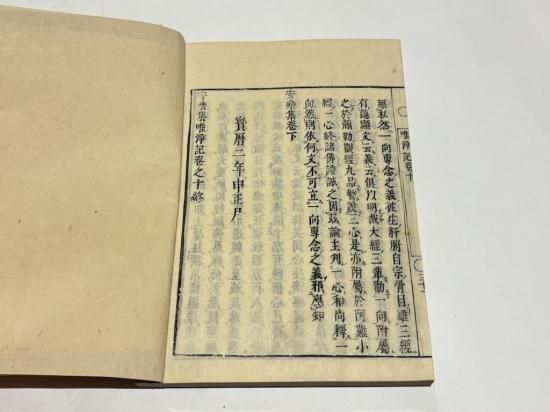 唯淨記卷十
無私然一向專念之義從生肝腑自宗骨目雖三經
有隱顯文云義云俱以明哉大經三輩勸一向附屬
之於彌勒觀經九品暫說三心是亦附屬於阿難小
經一心終諸佛證誠之因玆論主判一心和尚釋一
向然則依何文不可立一向專念之義邪應知
安樂集卷下
寶曆二年申正月
安樂集唯淨記卷之十終